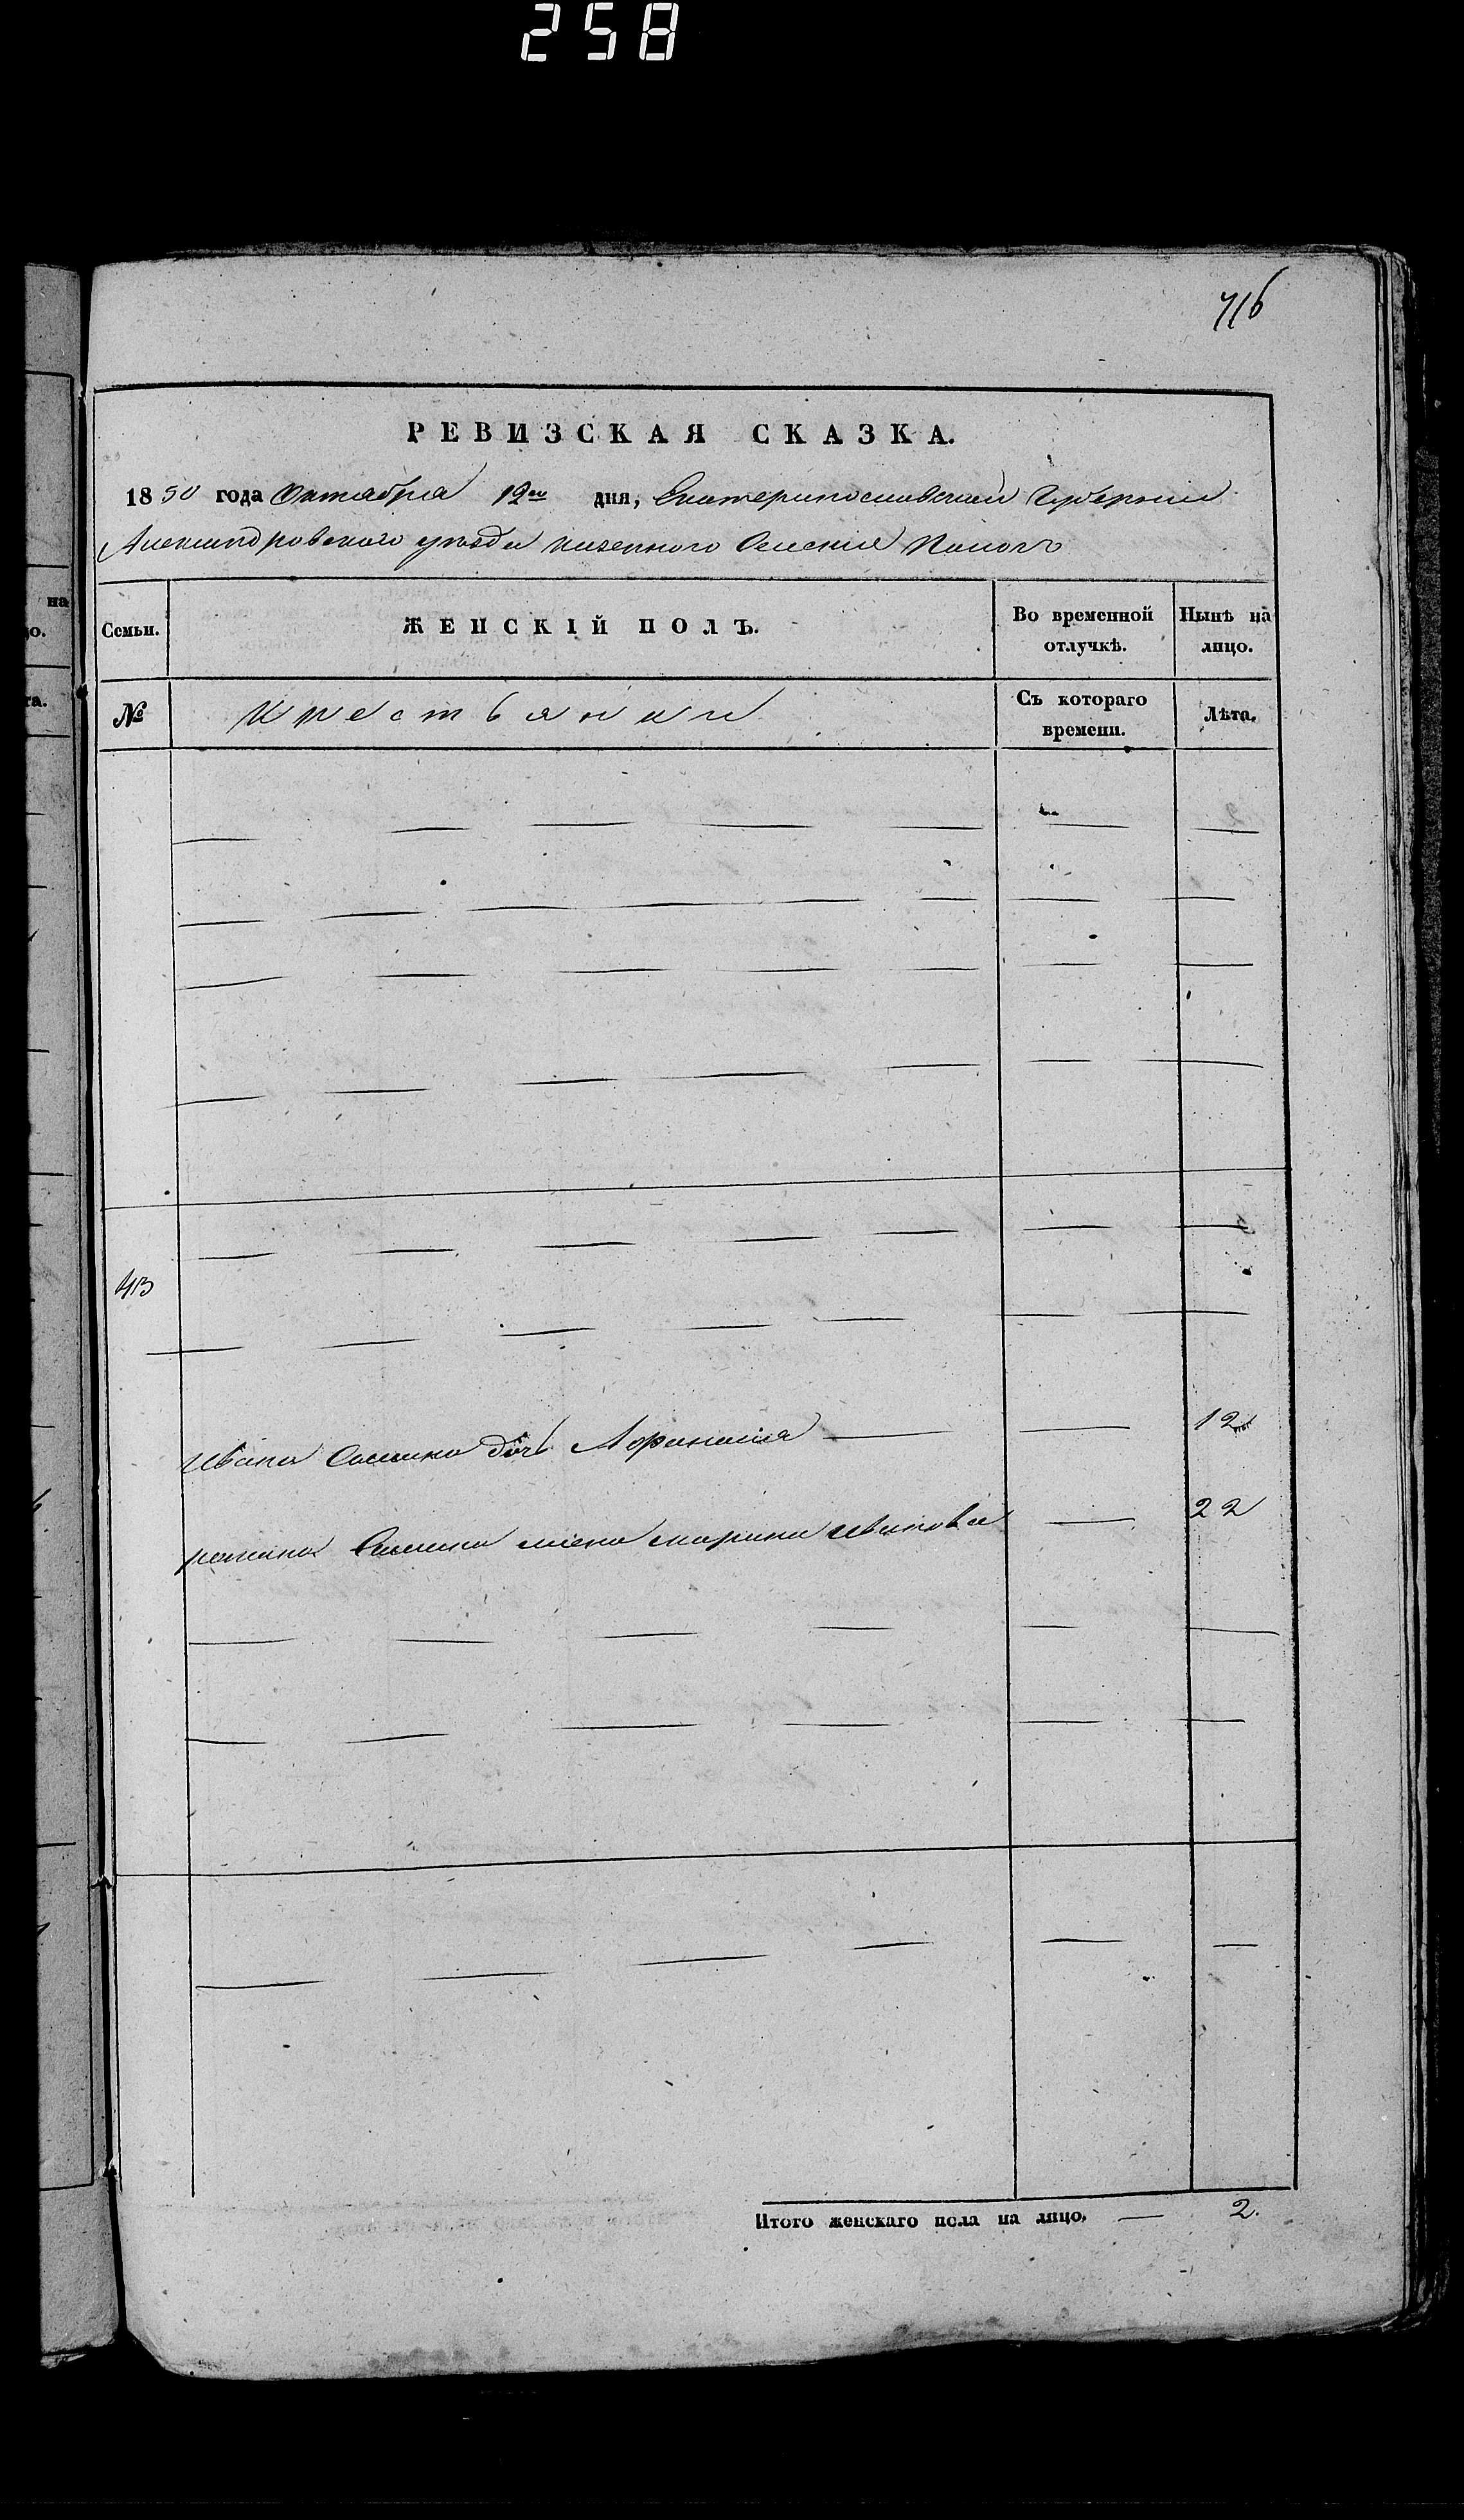 258
716
РЕВИЗСКАЯ СКАЗКА.
1850 года Октября 19го дня, Екатеринославской Губернии
Александровского уезда казенного Селения Пологъ
Семьи.
ЖЕНСКІЙ ПОЛЪ.
Во временной отлучкѣ.
Нынѣ на лицо.
№
Крестьянки
Съ котораго времени.
Лѣта.
43
Ивана Самика доч Афанасия — — 12
Самика жена Марина Иванова — 22
Итого женскаго пола на лицо. — 2.
на
о.
та.